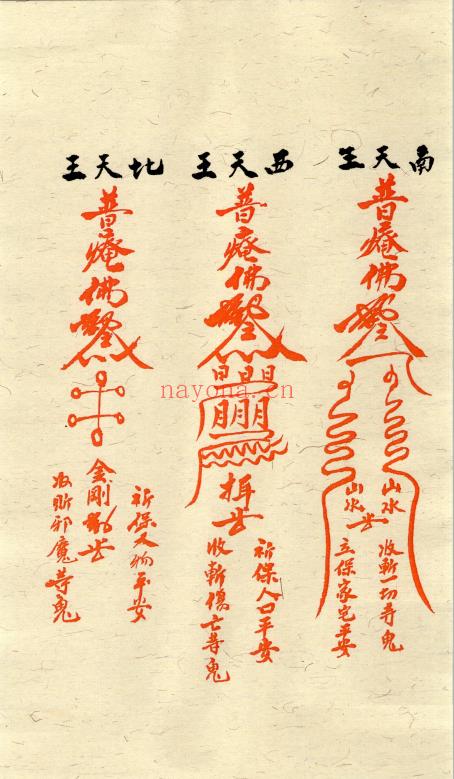 南天王
普庵佛
山水
山水
收斬一切等鬼
立保家宅平安
西天王
普庵佛
日晶日
朋朋
祈保人口平安
收斬傷亡等鬼
北天王
普庵佛
金剛
祈保人物平安
收斬邪魔等鬼
nayona.cn